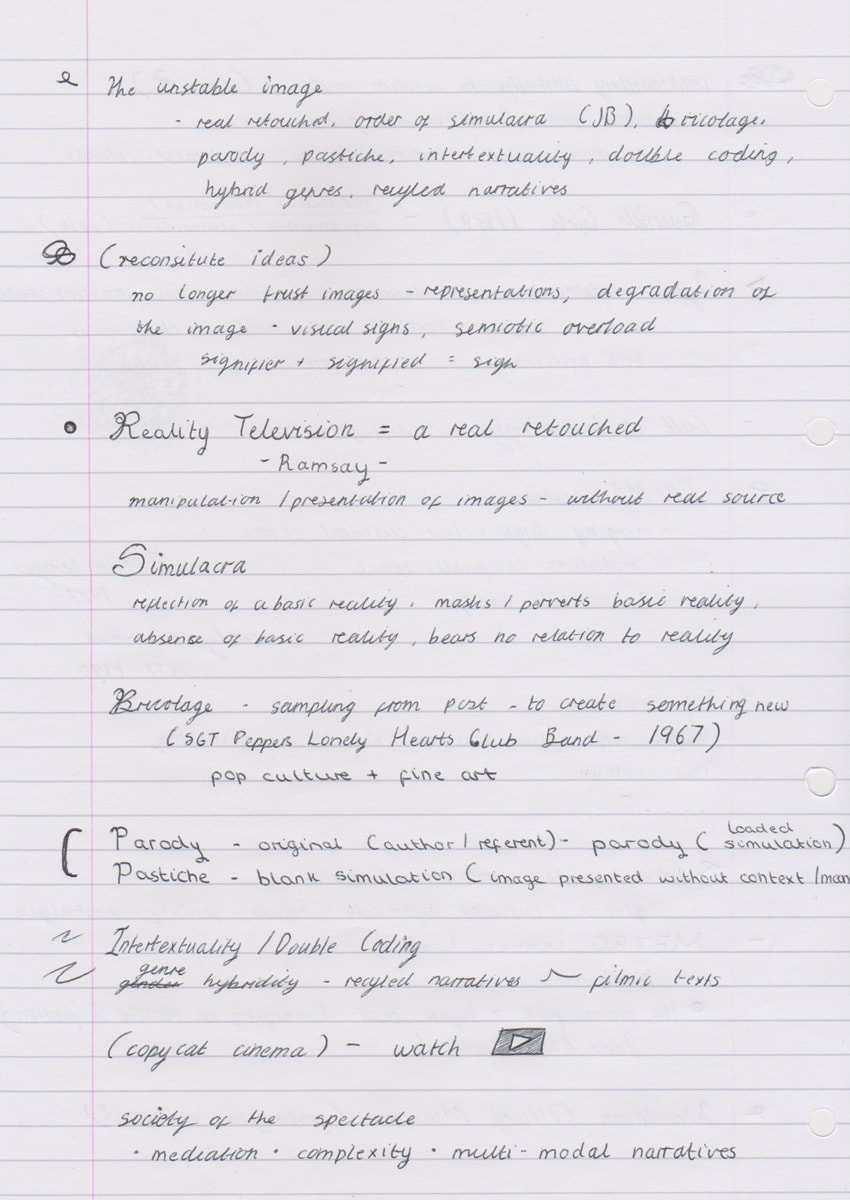 the unstable image
- real retouched, order of simulacra (JB), bricolage,
parody, pastiche, intertextuality, double coding,
hybrid genres, recyled narratives
(reconsitute ideas)
no longer trust images - representations, degradation of
the image - visual signs, semiotic overload
signifier + signified = sign
Reality Television = a real retouched
- Ramsay -
manipulation / presentation of images - without real source
Simulacra
reflection of a basic reality, masks / perverts basic reality,
absense of basic reality, bears no relation to reality
Bricolage - sampling from past - to create something new
(SGT Peppers Lonely Hearts Club Band - 1967)
pop culture + fine art
Parody - original (author / referent) - parody (loaded simulation)
Pastiche - blank simulation (image presented without context /man
Intertextuality / Double Coding
gender genre hybridity - recyled narratives filmic texts
(copycat cinema) - watch
society of the spectacle
• mediation • complexity • multi-modal narratives